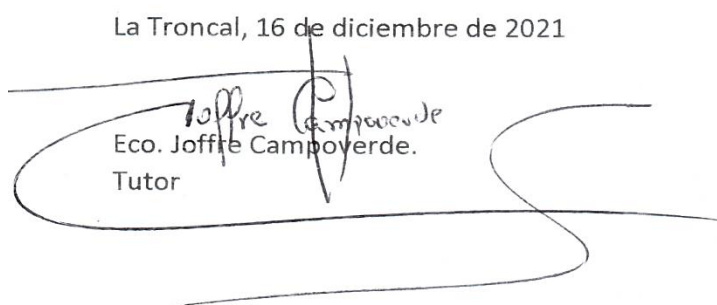 La Troncal, 16 de diciembre de 2021
Joffre Campoverde
Eco. Joffre Campoverde.
Tutor